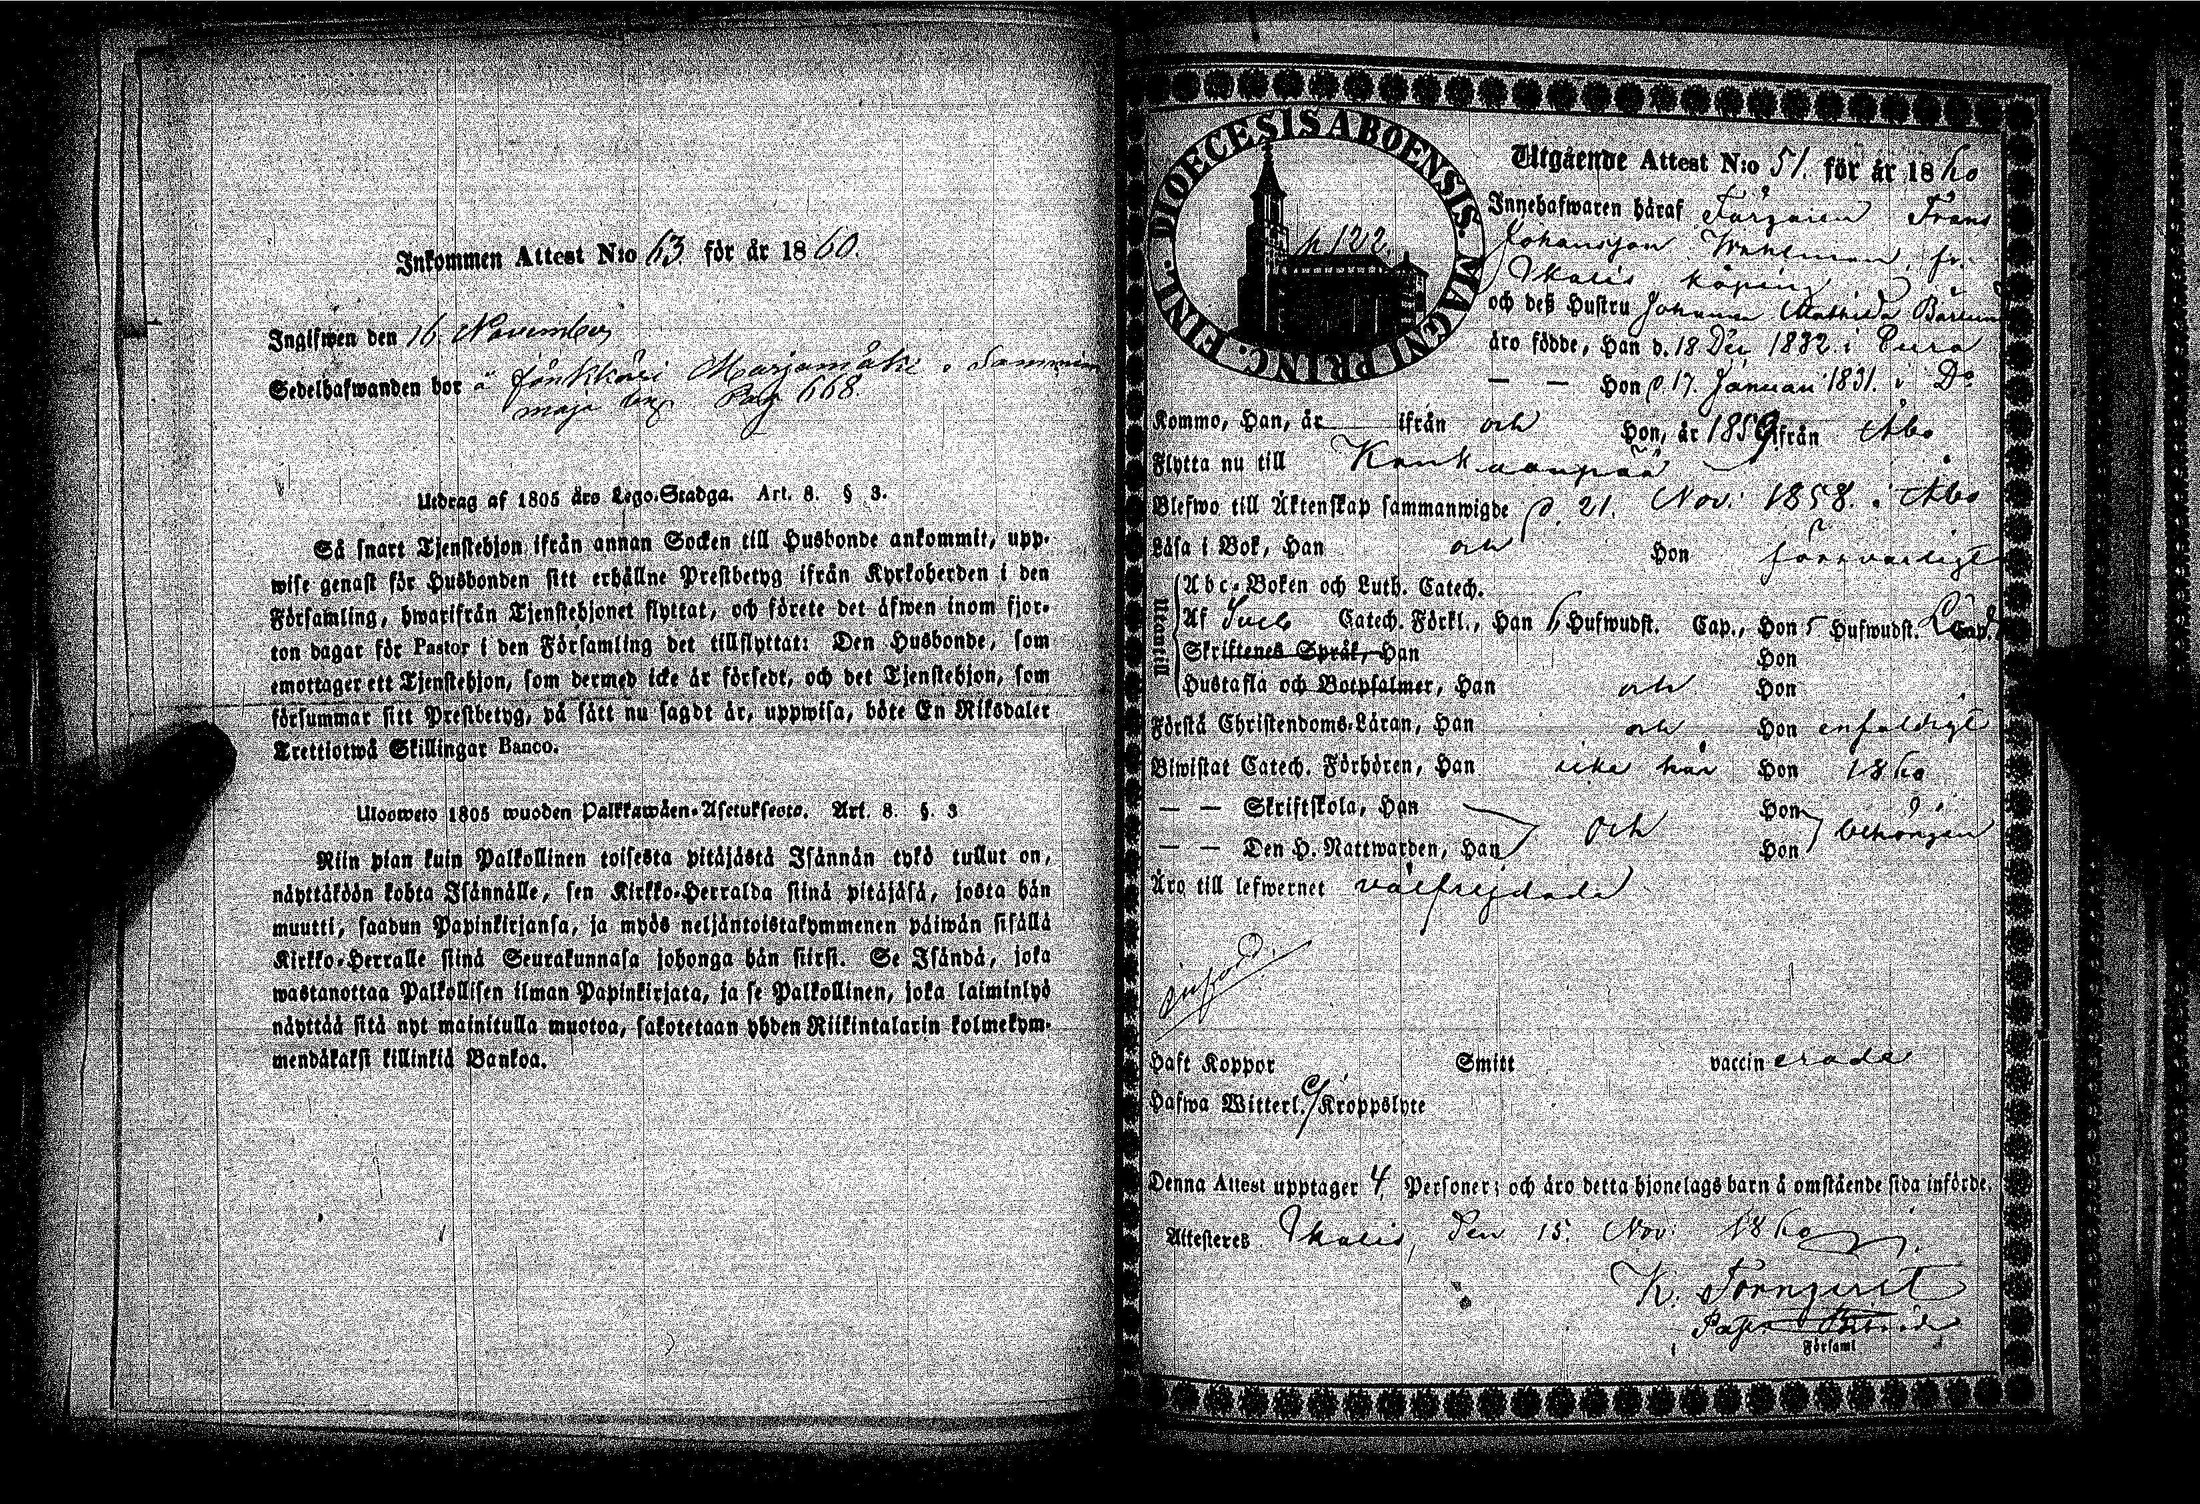 Inkommen Attest N:o 63 för år 1860.
Inglfwen den 16 November
Sedelhafwanden bor å Jönkkäri Marjamäki
Pag 668.
Utdrag af 1805 års Lego-Stadga. Art. 8. § 3.
Så snart Tjenstehjon ifrån annan Socken till Husbonde ankommit, upp-
wise genast för Husbonden sitt erhållne Prestbetyg ifrån Kyrkoherden i den
Församling, hwarifrån Tjenstehjonet flyttat, och förete det äfwen inom fjor-
ton dagar för Pastor i den Församling det tillflyttat: Den Husbonde, som
emottager ett Tjenstehjon, som dermed icke är försedt, och det Tjenstehjon, som
försummar sitt Prestbetyg, på sätt nu sagdt är, uppwisa, böte En Riksdaler
Trettiotwå Skillingar Banco.
Ulosweto 1805 wuoden Palkkawäen-Asetuksesta. Art. 8. §. 3
Niin pian kuin Palkollinen toisesta pitäjästä Isännän tykö tullut on,
näyttäköön kohta Isännälle, sen Kirkko-Herralda siinä pitäjäsä, josta hän
muutti, saadun Papinkirjansa, ja myös neljäntoistakymmenen päiwän sisällä
Kirkko-Herralle siinä Seurakunnasa johonga hän siirsi. Se Isändä, joka
wastanottaa Palkollisen ilman Papinkirjata, ja se Palkollinen, joka laiminlyö
näyttää sitä nyt mainitulla muotoa, sakotetaan yhden Riikintalarin kolmekym-
mendäkaksi killinkiä Bankoa.
DIOECESIS ABOENSIS. MAGNI PRINC. FINL.
p 122.
Utgående Attest N:o 51. för år 1860
Innehafwaren häraf Färgaren Frans
Johansson Wahlman, fr.
Ikalis köping
och deß Hustru Johanna Mathilda
äro födde, Han d. 18 Dec 1832. i Eura
— — Hon d. 17. Januari 1831. i Do
Kommo, Han, år ifrån och Hon, år 1859 ifrån Åbo
Flytta nu till Kankaanpää
Blefwo till Äktenskap sammanwigde d. 21. Nov: 1858. i Åbo
Läsa i Bok, Han och Hon försvarligt
Utantill
Abc-Boken och Luth. Catech.
Af Sveb Catech. Förkl., Han 6 Hufwudst. Cap., Hon 5 Hufwudst. Cap.
Skriftenes Språk, Han Hon
Hustafla och Botpsalmer, Han och Hon
Förstå Christendoms-Läran, Han och Hon enfaldigt
Biwistat Catech. Förhören, Han icke här Hon 1860
— — Skriftskola, Han Hon
och behörigen
— — Den H. Nattwarden, Han Hon
Äro till lefwernet välfrejdade
Haft Koppor Smitt vaccinerade
Hafwa Witterl. Kroppslyte
Denna Attest upptager 4 Personer; och äro detta hjonelags barn å omstående sida införde.
Attesteres Ikalis, den 15. Nov: 1860
K. Törnqvist
Församl